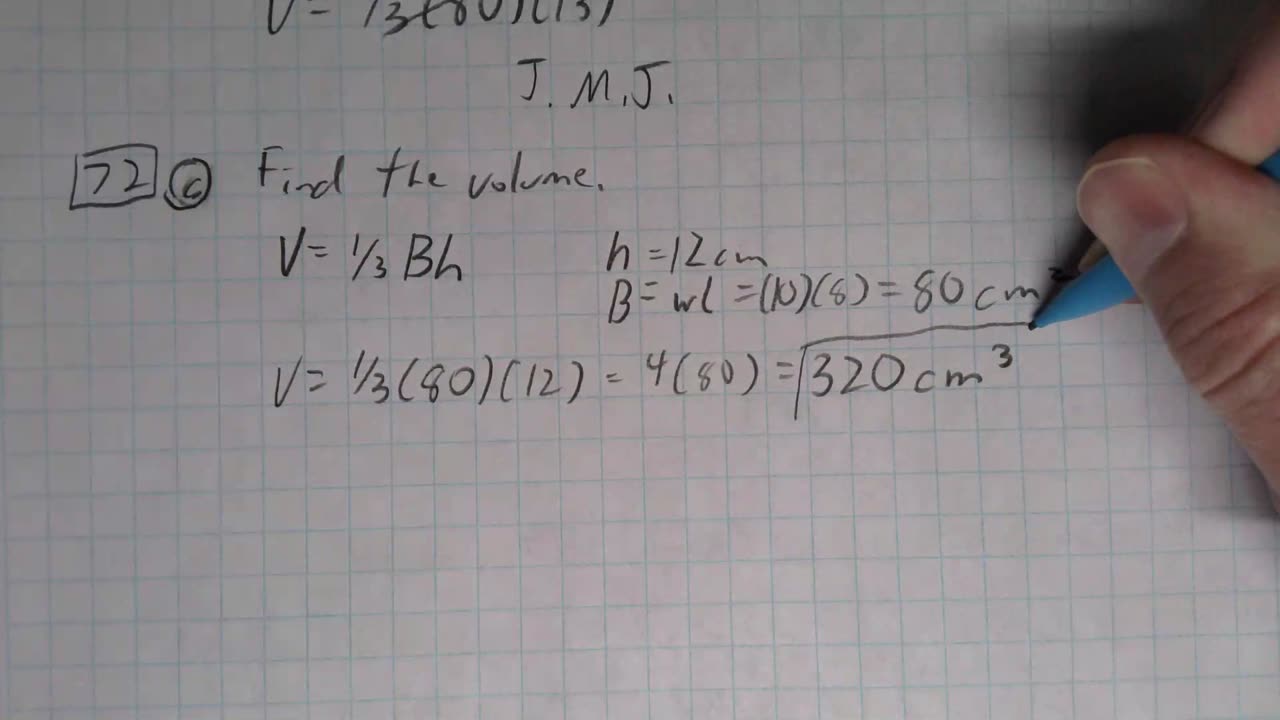 V = 1/3(80)(13)
J.M.J.
72 c Find the volume.
V = 1/3 Bh
h = 12 cm
B = wl = (10)(8) = 80 cm²
V = 1/3(80)(12) = 4(80) = 320 cm³